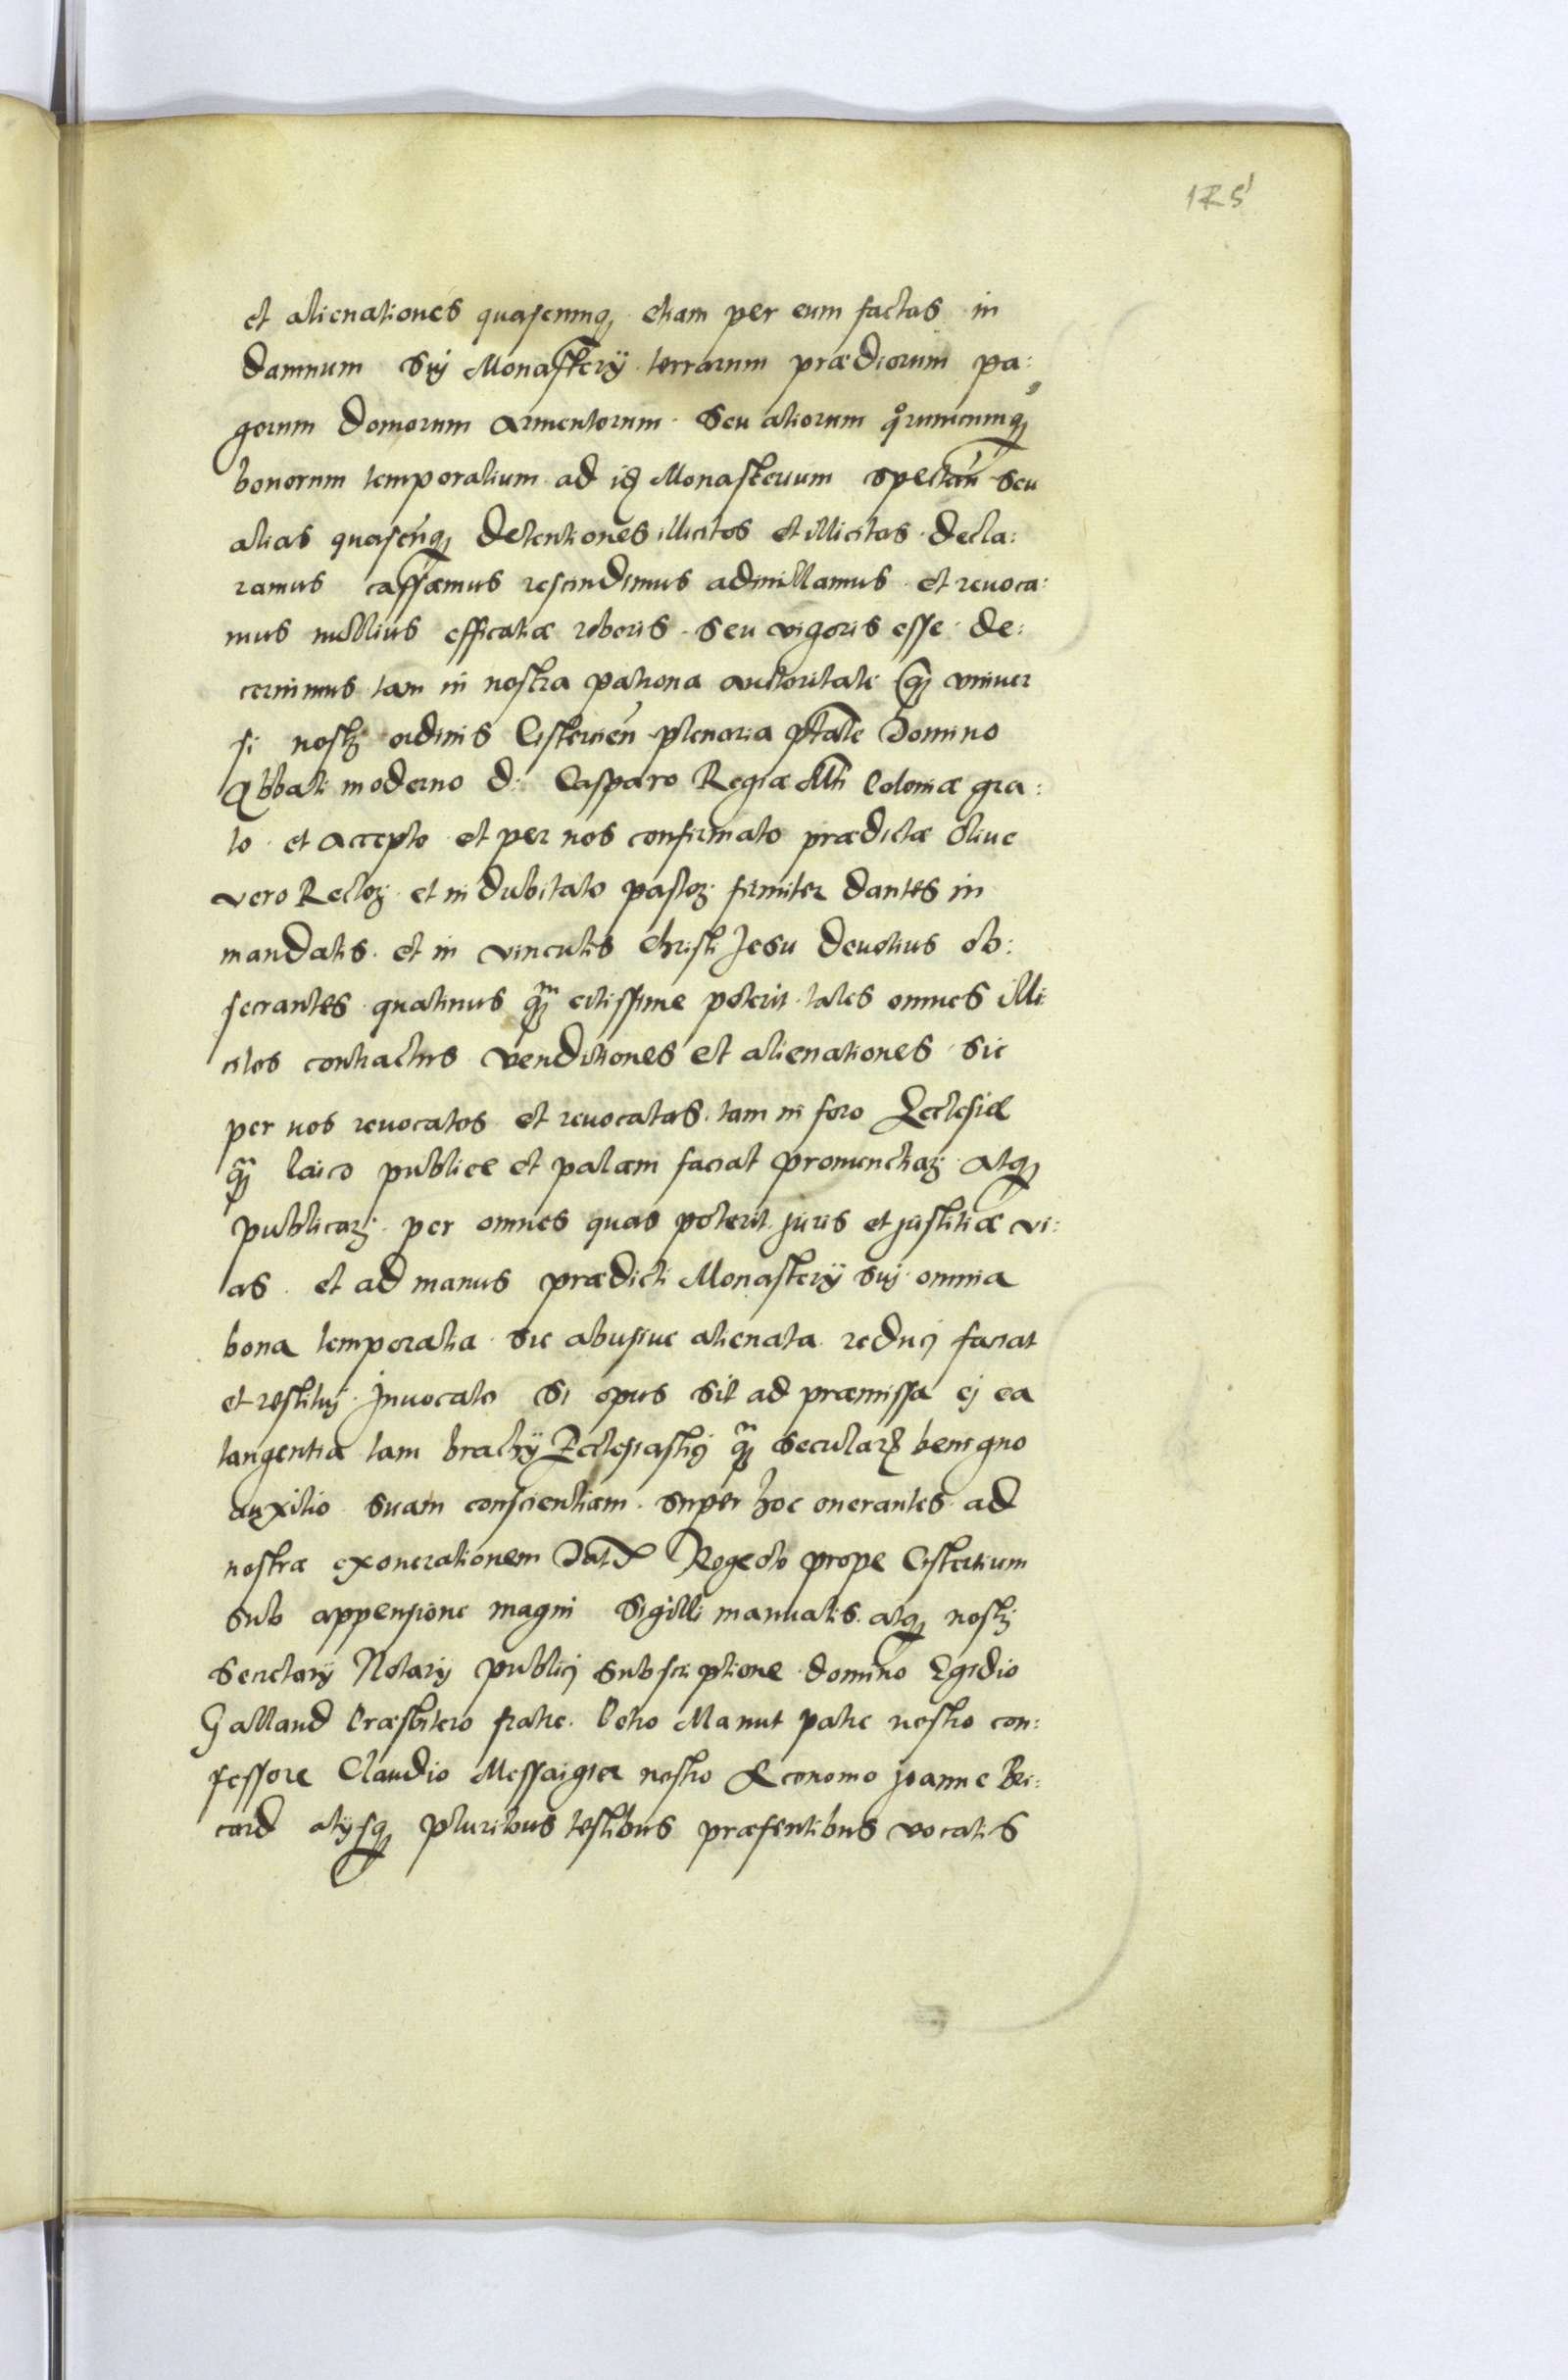 125
et alienationes quascunq etiam per eum factas in
damnum suj Monasterij terrarum prædiorum pa:
gorum domorum armentorum seu aliorum qorumcumq
bonorum temporalium ad id Monasterium spectan seu
alias quascunq detentiones illicitos et illicitas decla:
ramus cassamus rescindimus adnullamus et reuoca:
mus nullius efficatiæ roboris seu vigoris esse de:
cernimus tam in nostra patrona auctoritate q vniuer
si nostrj ordinis Cistercien plenaria ptate Domino
Abbati moderno d: Casparo Regiæ Mti Coloniæ gra:
to et accepto et per nos confirmato prædictæ Oliue
vero Rectorj et indubitato pastorj firmiter dantes in
mandatis et in vinculis Christi Jesu deuotius ob:
secrantes quatinus qm citissime poterit tales omnes illi
citos contractus venditiones et alienationes sic
per nos reuocatos et reuocatas tam in foro Ecclesiæ
qm laico publice et palam faciat pronunctiarj atq
publicarj per omnes quas poterit juris et justitiæ vi:
as et ad manus prædicti Monasterij suj omnia
bona temporalia sic abusiue alienata reducj faciat
et restituj Jnuocato si opus sit ad præmissa ej ea
tangentia tam brachij Ecclesiasticj qm secularis benigno
auxilio suam conscientiam super hoc onerantes ad
nostræ exonerationem Dat Rogecto prope Cistertium
sub appensione magni Sigilli manualis atq nostrj
Secretarij Notarij publicj subscriptione domino Egidio
Galland Præsbitero fratre Petro Manut patre nostro con:
fessore Claudio Messaigier nostro Œconomo Joanne Bri:
card alijsq pluribus testibus præsentibus vocatis